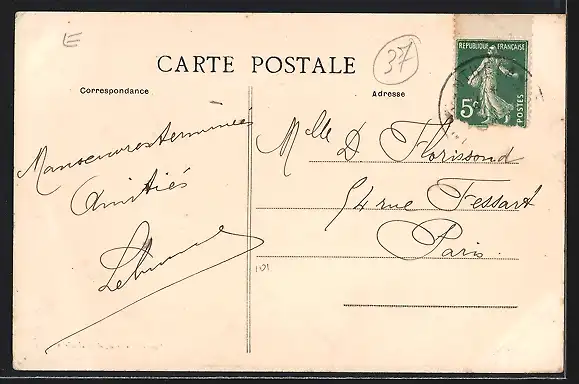 E
37
CARTE POSTALE
Correspondance
Adresse
REPUBLIQUE FRANÇAISE
5c
POSTES
Manoeuvres terminées
Amitiés
Mlle D Florissond
54 rue Fessart
Paris.
101